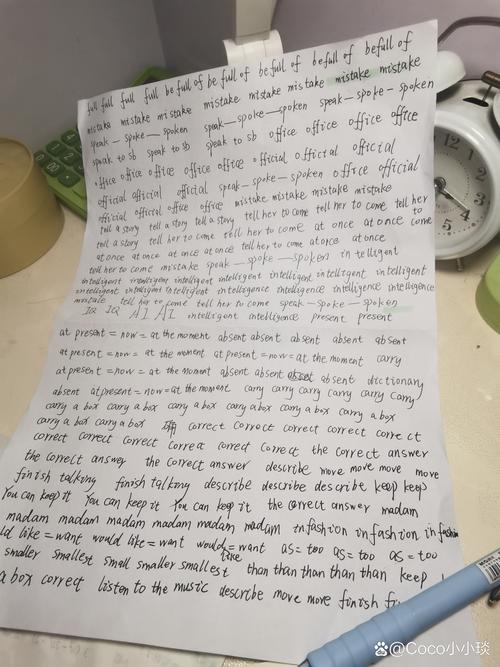 full full full full be full of be full of be full of be full of be full of
mistake mistake mistake mistake mistake mistake mistake mistake
speak — spoke — spoken speak — spoke — spoken speak — spoke — spoken
speak to sb speak to sb speak to sb office office office office
office office office office office official official official
official official official speak — spoke — spoken office official
official official office office mistake mistake mistake mistake
tell a story tell a story tell a story tell her to come tell her to come tell her to
tell a story tell her to come tell her to come at once at once come
at once at once at once at once tell her to come at once at once
tell her to come mistake speak — spoke — spoken intelligent
intelligent intelligent intelligent intelligent intelligent intelligent intelligent
intelligent intelligent intelligent intelligence intelligence intelligence intelligence
mistake tell her to come tell her to come speak — spoke — spoken
IQ IQ AI AI intelligent intelligence present present
at present = now = at the moment absent absent absent absent absent
at present = now = at the moment at present = now = at the moment carry
at present = now = at the moment absent absent absent dictionary
absent at present = now = at the moment carry carry carry carry carry carry
carry a box carry a box carry a box carry a box carry a box
carry a box carry a box 确 correct correct correct correct correct
correct correct correct correct correct correct the correct answer
the correct answer the correct answer describe move move move move
finish talking finish talking describe describe describe keep keep
You can keep it You can keep it You can keep it the correct answer madam
madam madam madam madam madam madam in fashion in fashion in fashion
ld like = want would like = want would like = want as = too as = too as = too
smaller smallest small smaller smallest than than than than than keep
a box correct listen to the music describe move move finish
12
1
2
3
4
5
@Coco小小琰